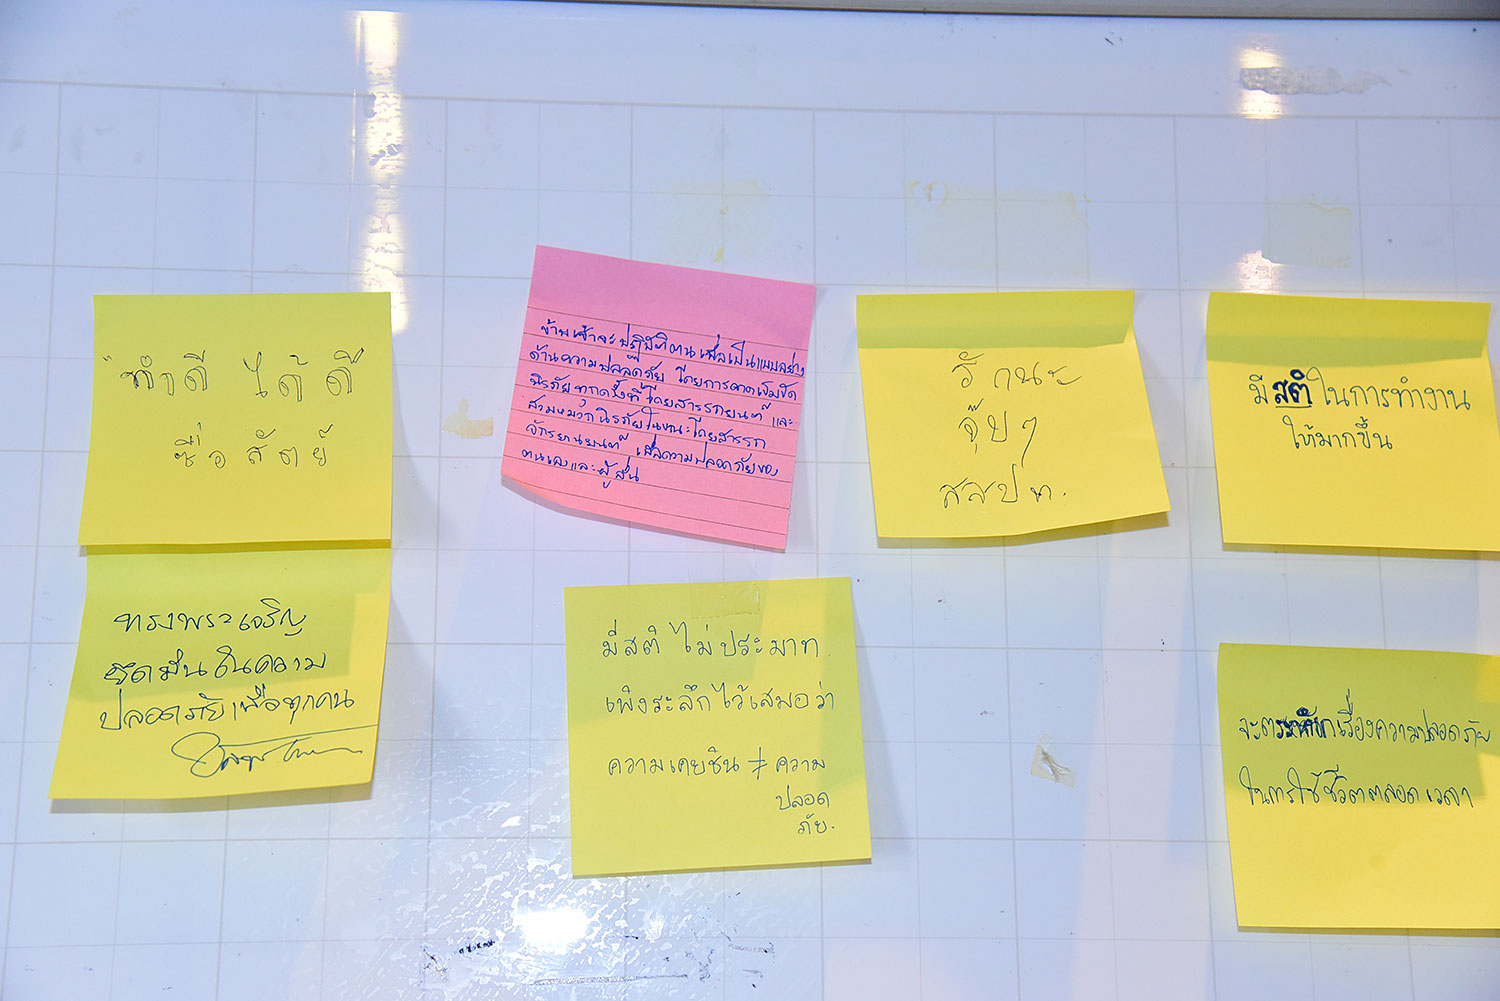 "ทำดี ได้ดี
ซื่อสัตย์
ทรงพระเจริญ
ยึดมั่นในความ
ปลอดภัยเพื่อทุกคน
ข้าพเจ้าจะปฏิบัติตนเพื่อเป็นแบบอย่าง
ด้านความปลอดภัย โดยการคาดเข็มขัด
นิรภัยทุกครั้งที่โดยสารรถยนต์ และ
สวมหมวกนิรภัยในขณะโดยสารรถ
จักรยานยนต์ เพื่อความปลอดภัยของ
ตนเองและผู้อื่น
มีสติ ไม่ประมาท
เพิงระลึกไว้เสมอว่า
ความเคยชิน ≠ ความ
ปลอด
ภัย.
รักนะ
จุ๊บๆ
สสปท.
มีสติในการทำงาน
ให้มากขึ้น
จะตระหนักเรื่องความปลอดภัย
ในการใช้ชีวิตตลอดเวลา